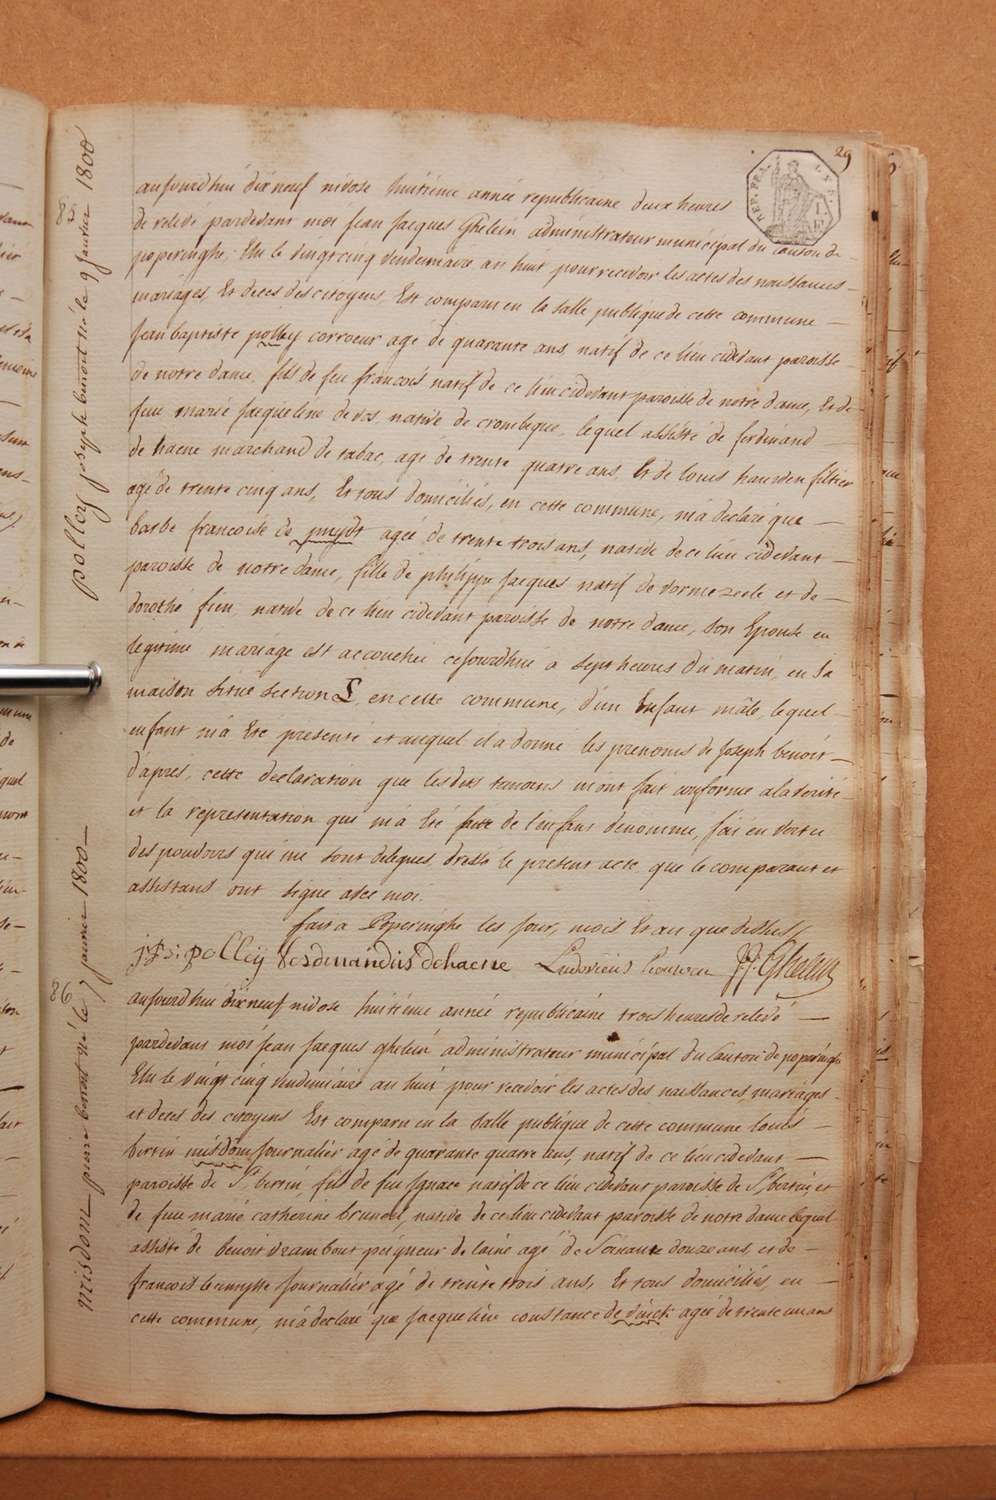 29
REP. FRA.
85
polley joseph benoit né le 9 janvier 1800
aujourdhui dixneuf nivose huitieme année republicaine deux heures
de relevé pardevant moi jean jacques Ghelein administrateur municipal du Canton de
poperinghe, Elu le vingt cinq vendemiaire an huit pour recevoir les actes des naissances
mariages, Et deces des citoyens, Est comparu en la salle publique de cette commune
jean baptiste polley corroeur agé de quarante ans, natif de ce lieu cidevant paroisse
de notre dame, fils de feu francois natif de ce lieu cidevant paroisse de notre dame, Et de
feue marie jacqueline devos, native de crombeque, lequel assisté de ferdinand
de haene marchand de tabac, agé de trente quatre ans, Et de louis
agé de trente cinq ans, Et tous domiciliés, en cette commune, m'a declaré que
barbe francoise de puydt agée de trente trois ans, native de ce lieu cidevant
paroisse de notre dame, fille de philippe jacques natif de vormezeele et de
dorothé fien, native de ce lieu cidevant paroisse de notre dame, son Epouse en
legitime mariage est accouchée cejourdhui a sept heures du matin, en sa
maison situé section S, en cette commune, d'un Enfant mâle, lequel
enfant m'a Eté presenté et auquel il a donné les prenoms de joseph benoit
d'apres, cette declaration que lesdits temoins m'ont fait conforme a la verité
et la representation qui m'a Eté faite de l'enfant denommé, j'ai en vertu
des pouvoirs qui me sont delegués, dressé le present acte que le comparant et
assistans ont signe avec moi.
fait a Poperinghe les jour, mois Et an que dessus
j: B: polleij ferdinandus dehaene Ludovicus J.J. Ghelein
86
misdom pierre benoit né le 9 janvier 1800
aujourdhui dixneuf nivose huitieme année republicaine trois heures de relevé
pardevant moi jean jacques ghelein administrateur municipal du Canton de poperinghe
Elu le vingt cinq vendemiaire an huit pour recevoir les actes des naissances, mariages
et deces des citoyens Est comparu en la salle publique de cette commune louis
bertin misdom journalier agé de quarante quatre ans, natif de ce lieu cidevant
paroisse de St bertin, fils de feu Ignace natif de ce lieu cidevant paroisse de St bertin, et
de feue marie catherine bruneel, native de ce lieu cidevant paroisse de notre dame lequel
assisté de benoit peigneur de laine agé de Soixante douze ans, et de
francois journalier agé de trente trois ans, Et tous domiciliés, en
cette commune, m'a declaré que jacqueline constance de vinck agée de trente un ans